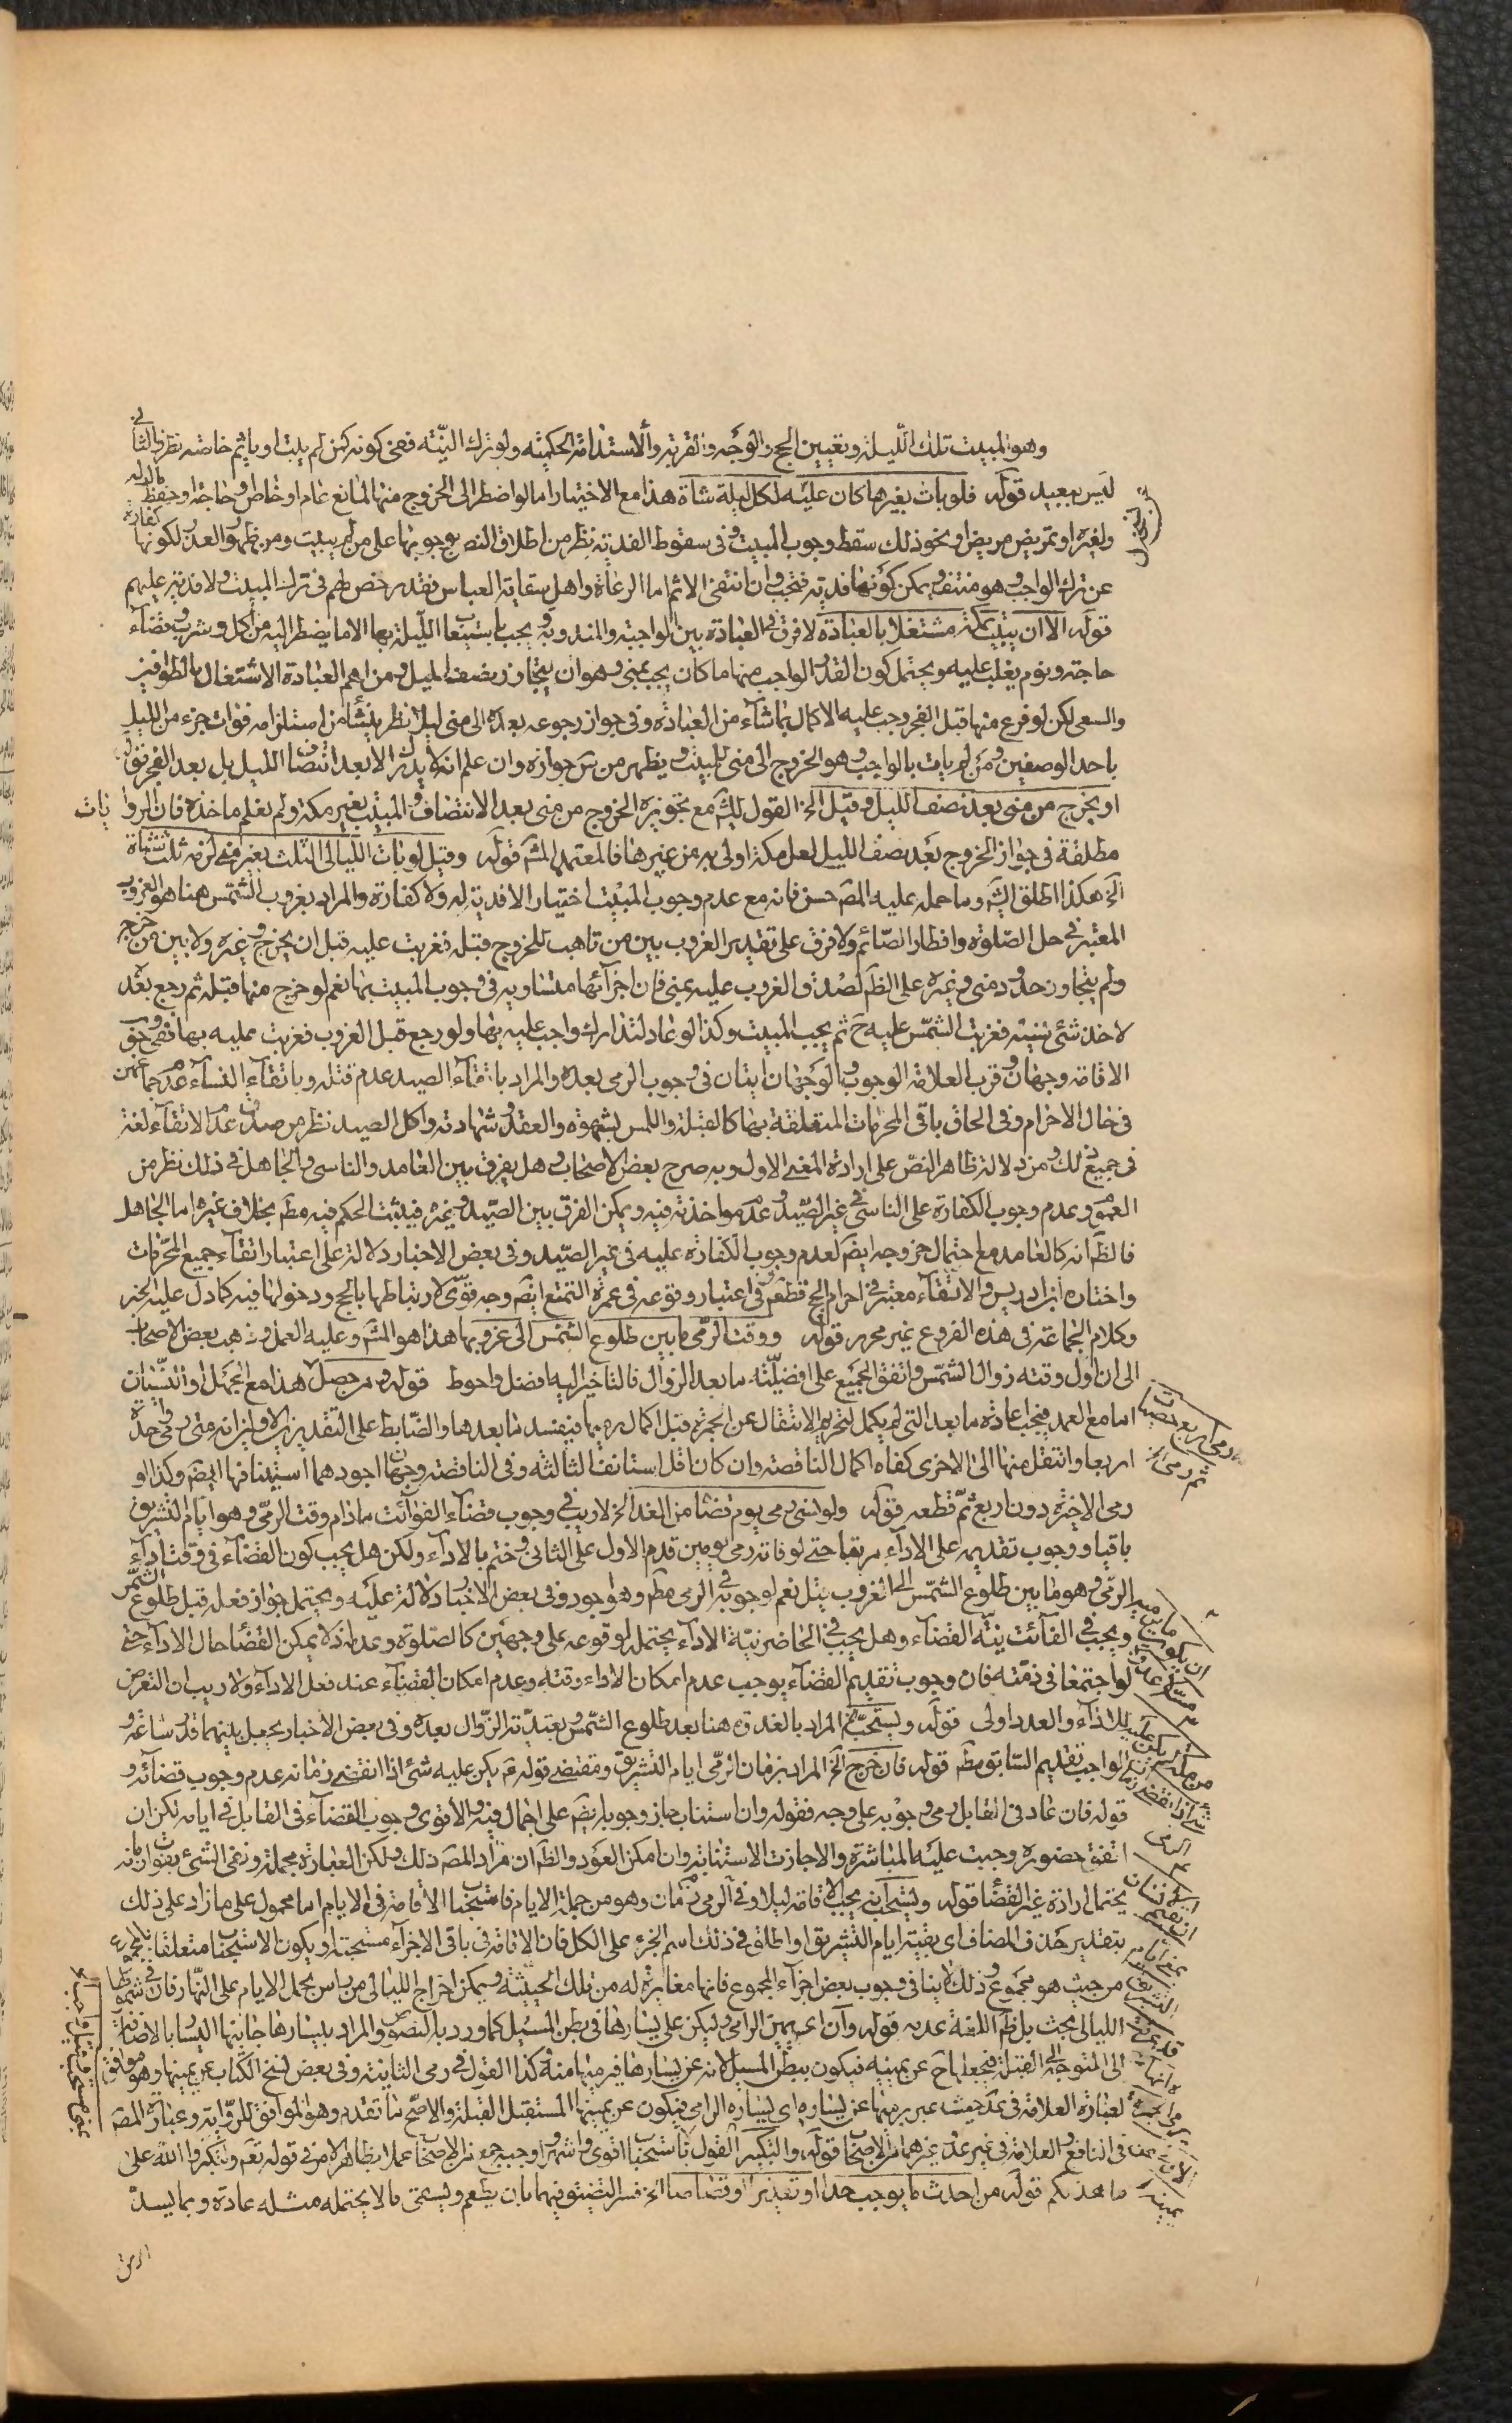 وهو المبيت تلك الليلة وتعيين الحج والوجه والقربة والاستدامة الحكمية ولو ترك النيّة ففى كونه كمن لم يبت او ياثم خاصّة نظر والثانى
ليس ببعيد قوله فلو بات بغيرها كان عليه لكل ليلة شاة هذا مع الاختيار اما لو اضطر الى الخروج منها لمانع عام او خاص او حاجة او حفظ مال له
ولغيره او تمريض مريض او نحو ذلك سقط وجوب المبيت وفى سقوط الفدية نظر من اطلاق النص بوجوبها على من لم يبيت ومن ظهور العذر لكونها كفارة
عن ترك الواجب وهو منتف ويمكن كونها فدية فتجب وان انتفى الاثم اما الرعاة واهل سقاية العباس فقد رخص لهم فى ترك المبيت ولا فدية عليهم
قوله الا ان يبيت بمكة مشتغلا بالعبادة لا فرق فى العبادة بين الواجبة والمندوبة ويجب استيعاب الليلة بها الا ما يضطر اليه من اكل وشرب وقضاء
حاجة ونوم يغلب عليه ويحتمل كون القدر الواجب منها ما كان يجب بمنى وهو ان يتجاوز نصف الليل ومن اهم العبادة الاشتغال بالطواف
والسعى لكن لو فرغ منها قبل الفجر وجب عليه الاكمال بما شاء من العبادة وفى جواز رجوعه بعده الى منى ليلا نظر ينشأ من استلزامه فوات جزء من الليل
باحد الوصفين ومن لم يات بالواجب وهو الخروج الى منى للمبيت ويظهر من س جوازه وان علم انه لا يدرك الا بعد انتصاف الليل بل بعد الفجر قوله
او يخرج من منى بعد نصف الليل وقيل الخ القول للشيخ مع تجويزه الخروج من منى بعد الانتصاف والمبيت بغير مكة ولم نعلم ماخذه فان الروايات
مطلقة فى جواز الخروج بعد نصف الليل لعل مكة اولى به من غيرها فالمعتمد المشهور قوله وقيل لو بات الليالى الثلث بغير منى لزمه ثلث شياة
الخ هكذا اطلق الشيخ وما حمله عليه المصـ حسن فانه مع عدم وجوب المبيت اختيارا لا فدية له ولا كفارة والمراد بغروب الشمس هنا هو الغروب
المعتبر فى حل الصلوة وافطار الصائم ولا فرق على تقدير الغروب بين من تاهب للخروج قبله فغربت عليه قبل ان يخرج وغيره ولا بين من خرج
ولم يتجاوز حدود منى وغيره على الظاهر لصدق الغروب عليه بمنى فان اجزائها متساوية فى وجوب المبيت بها نعم لو خرج منها قبله ثم رجع بعد
لاخذ شئ نسيه فغربت الشمس عليه ح لم يجب المبيت وكذا لو عاد لتدارك واجب عليه بها ولو رجع قبل الغروب فغربت عليه بها ففى وجوب
الاقامة وجهان وقرب العلامة الوجوب والوجهان اتيان فى وجوب الرمى بعده والمراد باتقاء الصيد عدم قتله وباتقاء النساء عدم جماعهن
فى حال الاحرام وفى الحاق باقى المحرمات المتعلقة بهما كالقبلة واللمس بشهوة والعقد وشهادته واكل الصيد نظر من صدق عدم الاتقاء لغة
فى جميع ذلك ومن دلالة ظاهر النص على ارادة المعنى الاول وبه صرح بعض الاصحاب وهل يفرق بين العامد والناسى والجاهل فى ذلك نظر من
العموم وعدم وجوب الكفارة على الناسى فى غير الصيد وعدم مواخذته فيه ويمكن الفرق بين الصيد وغيره فيثبت الحكم فيه مط بخلاف غيره اما الجاهل
فالظاهر انه كالعامد مع احتمال خروجه ايضا لعدم وجوب الكفارة عليه فى غير الصيد وفى بعض الاخبار دلالة على اعتبار اتقاء جميع المحرمات
واختاره ابن ادريس والاتقاء معتبر فى احرام الحج قطعا وفى اعتبار وقوعه فى عمرة التمتع ايضا وجه قوى لارتباطها بالحج ودخولها فيه كما دل عليه الخبر
وكلام الجماعة فى هذه الفروع غير محرر قوله ووقت الرمى ما بين طلوع الشمس الى غروبها هذا هو المشهور وعليه العمل وذهب بعض الاصحاب
الى ان اول وقته زوال الشمس واتفق الجميع على افضليته ما بعد الزوال فالتاخير اليه افضل واحوط قوله ومن حصل هذا مع الجهل او النسيان
اما مع العمد فيجب اعادة ما بعد التى لم يكمل لتحريم الانتقال عن الجمرة قبل اكمال رميها فيفسد ما بعدها والضابط على التقديرين الاولين انه متى رمى واحدة
اربعا وانتقل منها الى الاخرى كفاه اكمال الناقصة وان كان اقل استانف الثالثة وفى الناقصة وجهان اجودهما استينافها ايضا وكذا لو
رمى الاخيرة دون اربع ثم قطعه قوله ولو نسى رمى يوم قضاه من الغد الخ لا ريب فى وجوب قضاء الفوائت مادام وقت الرمى وهو ايام التشريق
باقيا ووجوب تقديمه على الاداء مرتبا حتى لو فاته رمى يومين قدم الاول على الثانى وختم بالاداء ولكن هل يجب كون القضاء فى وقت اداء
الرمى وهو ما بين طلوع الشمس الى الغروب قيل نعم لوجوبه فى الرمى مط وهو اجود وفى بعض الاخبار دلالة عليه ويحتمل جواز فعله قبل طلوع الشمس
ويجب فى الفائت نية القضاء وهل يجب فى الحاضر نية الاداء يحتمله لوقوعه على وجهين كالصلوة وعدمه اذ لا يمكن القضاء حال الاداء حتى
لو اجتمعا فى ذمته فان وجوب تقديم القضاء يوجب عدم امكان الاداء وقته وعدم امكان القضاء عند فعل الاداء ولا ريب ان التعرض
للاداء والعدد اولى قوله ويستحب الخ المراد بالغدوة هنا بعد طلوع الشمس وبعشيّة الزوال بعده وفى بعض الاخبار يجعل بينهما قدر ساعة و
الواجب تقديم السابق مط قوله فان خرج الخ المراد بزمان الرمى ايام التشريق ومقتضى قوله لم يكن عليه شئ اذا انقضى زمانه عدم وجوب قضائه و
قوله فان عاد فى القابل رمى وجوبه على وجه فقوله وان استناب جاز وجوبه ايضا على اجمال فيه والاقوى وجوب القضاء فى القابل فى ايامه لكن ان
اتفق حضوره وجبت عليه المباشرة والا جازت الاستنابة وان امكن العود والظاهر ان مراد المصـ ذلك ولكن العبارة مجملة ونفى الشئ بفوات زمانه
يحتمل ارادة غير القضاء قوله ويستحب ان يقيم الاقامة ليلا وفى الرمى زمان وهو من جملة الايام فاستحباب الاقامة فى الايام اما محمول على ما زاد على ذلك
بتقدير حذف المضاف اى بقية ايام التشريق او اطلق فى ذلك اسم الجزء على الكل فان الاقامة فى باقى الاجزاء مستحبة او يكون الاستحباب متعلقا بالمجموع
من حيث هو مجموع وذلك لا ينافى وجوب بعض اجزاء المجموع فانها مغايرة له من تلك الحيثية ويمكن اخراج الليالى من راس بحمل الايام على النهار فان فى شمولها
الليالى بحث بل ظاهر اللغة عدمه قوله وان يرمى عن يمين الرامى وليكن على يسارها فى بطن المسيل كما ورد به النصوص والمراد بيسارها جانبها اليسار بالاضافة
الى المتوجه الى القبلة فيجعلها ح عن يمينه فيكون ببطن المسيل لانه عن يسارها فيرميها منه وكذا القول فى رمى الثانية وفى بعض نسخ الكتاب عن يمينها وهو موافق
لعبارة العلامة فى عد حيث عبر برميها عن يساره اى يسار الرامى فيكون عن يمينها المستقبل القبلة والاصح ما تقدم وهو الموافق للرواية وعبارة المصـ
فى النافع والعلامة فى غير عد وغيرهما من الاصحاب قوله والتكبير القول باستحبابه اقوى واشهر واوجبه جمع من الاصحاب عملا بظاهر الامر فى قوله تعم ولتكبروا الله على
ما هديكم قوله من احدث ما يوجب حدا او تعزيرا او قصاصا الخ فسر التضييق فيهما بان يطعم ويسقى ما لا يحتمله مثله عادة وبما يسد
الرمق